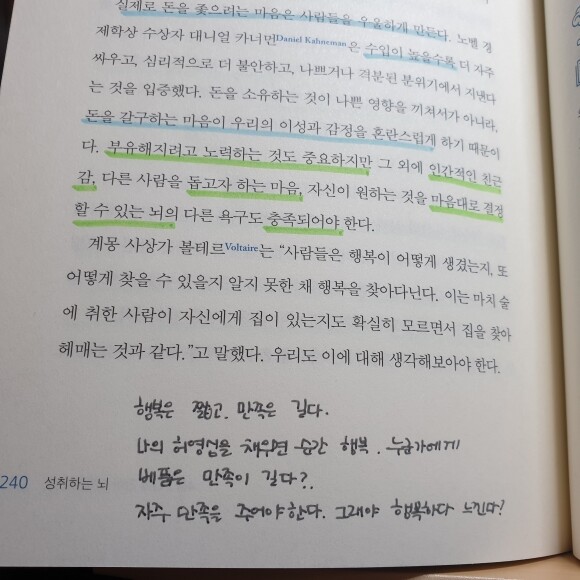 실제로 돈을 좇으려는 마음은 사람들을 우울하게 만든다. 노벨 경
제학상 수상자 대니얼 카너먼Daniel Kahneman은 수입이 높을수록 더 자주
싸우고, 심리적으로 더 불안하고, 나쁘거나 격분된 분위기에서 지낸다
는 것을 입증했다. 돈을 소유하는 것이 나쁜 영향을 끼쳐서가 아니라,
돈을 갈구하는 마음이 우리의 이성과 감정을 혼란스럽게 하기 때문이
다. 부유해지려고 노력하는 것도 중요하지만 그 외에 인간적인 친근
감, 다른 사람을 돕고자 하는 마음, 자신이 원하는 것을 마음대로 결정
할 수 있는 뇌의 다른 욕구도 충족되어야 한다.
계몽 사상가 볼테르Voltaire는 “사람들은 행복이 어떻게 생겼는지, 또
어떻게 찾을 수 있을지 알지 못한 채 행복을 찾아다닌다. 이는 마치 술
에 취한 사람이 자신에게 집이 있는지도 확실히 모르면서 집을 찾아
헤매는 것과 같다.”고 말했다. 우리도 이에 대해 생각해보아야 한다.
행복은 짧고. 만족은 길다.
나의 허영심을 채우면 순간 행복. 누군가에게
베풂은 만족이 길다?.
자주 만족을 주어야한다. 그래야 행복하다 느낀다?
240 성취하는 뇌